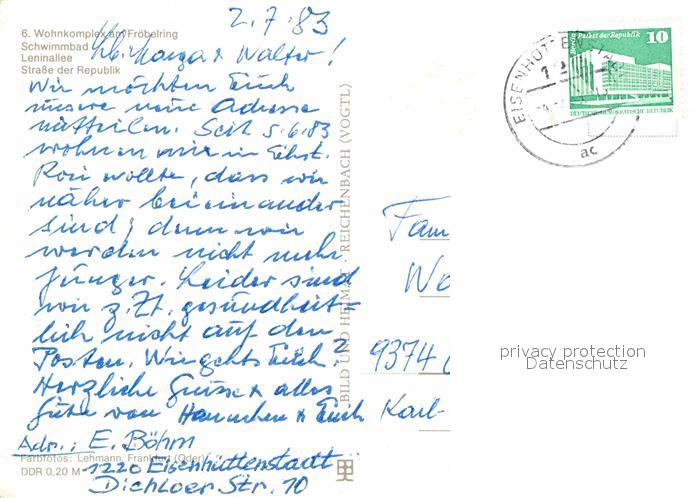 2.7.83
6. Wohnkomplex am Fröbelring
Schwimmbad
Leninallee
Straße der Republik
Walter!
Wir möchten Euch
unsere neue Adresse
mitteilen. Seit 5.6.83
wohnen wir in Ehst.
Rosi wollte, dass wir
näher beieinander
sind; denn wir
werden nicht mehr
jünger. Leider sind
wir z. Zt. gesundheit=
lich nicht auf dem
Posten. Wie gehts Euch?
Herzliche Grüsse & alles
Gute von Hannchen & Erich
Adr.: E. Böhm
1220 Eisenhüttenstadt
Dichloer Str. 10
Farbfotos: Lehmann, Frankfurt (Oder)
DDR 0,20 M
BILD UND HEIMAT REICHENBACH (VOGTL)
Palast der Republik
10
DEUTSCHE DEMOKRATISCHE REPUBLIK
EISENHÜTTENSTADT
12
ac
Fam
Wo
9374
Karl-
privacy protection
Datenschutz